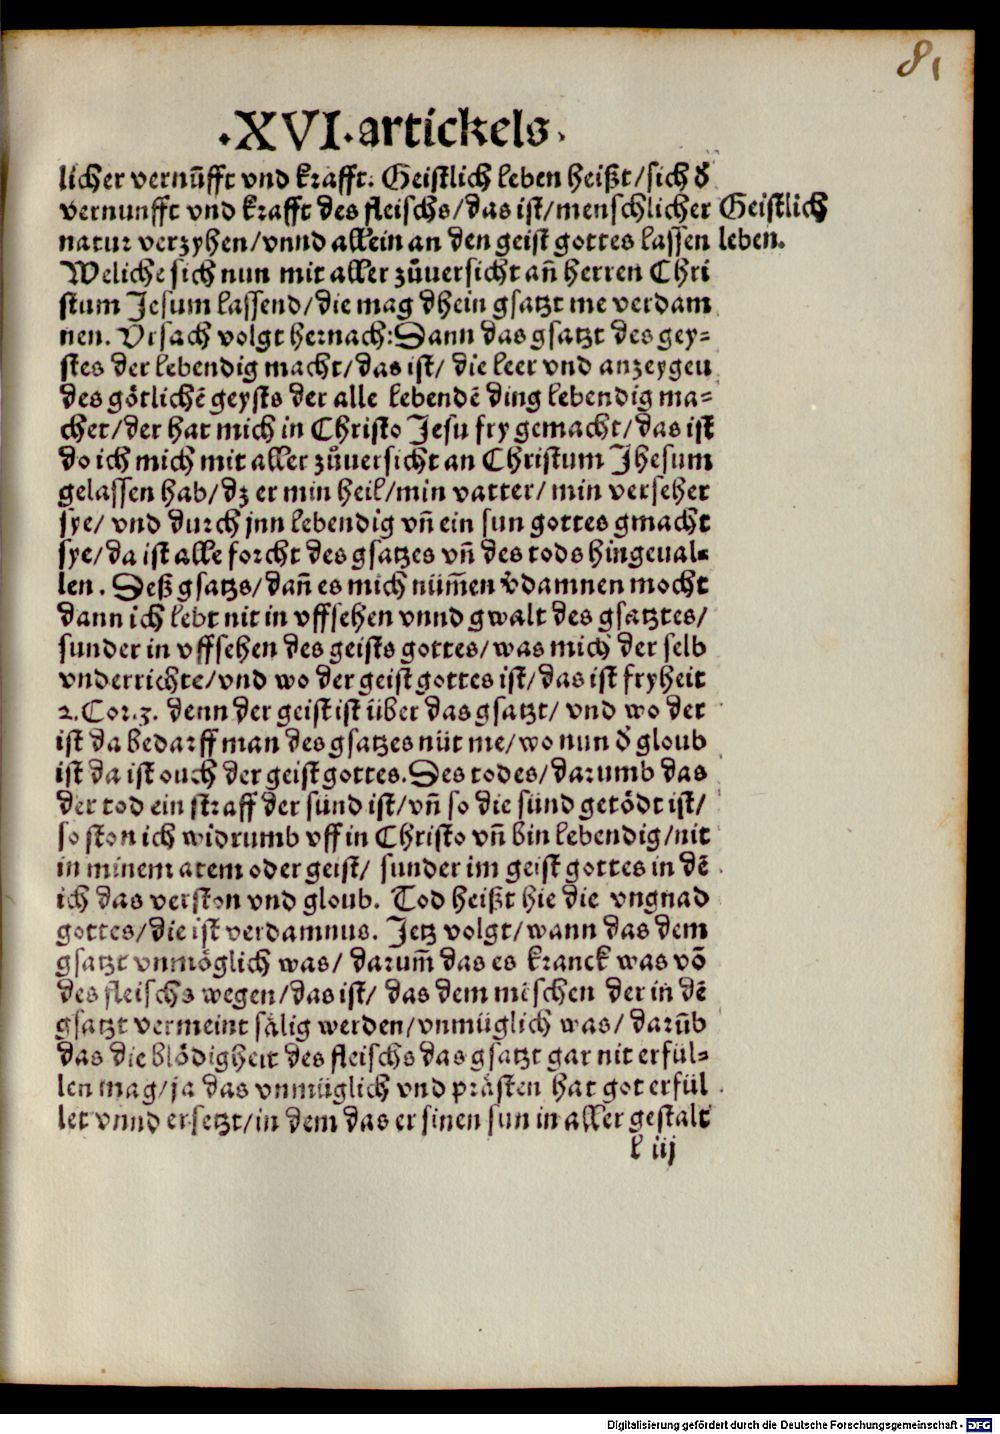 81
·XVI·artickels·
licher vernũfft vnd krafft. Geistlich leben heißt/sich d̕
vernunfft vnd krafft des fleischs/das ist/menschlicher Geistlich
natur verzyhen/vnnd allein an den geist gottes lassen leben.
Weliche sich nun mit aller zůuersicht an̄ herren Chri
stum Jesum lassend/die mag dhein gsatzt me verdam
nen. Vrsach volgt hernach: Dann das gsatzt des gey-
stes der lebendig macht/das ist/ die leer vnd anzeygen
des götlichē geysts der alle lebendē ding lebendig ma-
chet/der hat mich in Christo Jesu fry gemacht/das ist
do ich mich mit aller zůuersicht an Christum Jhesum
gelassen hab/dz er min heil/min vatter/ min verseher
sye/ vnd durch jnn lebendig vn̄ ein sun gottes gmacht
sye/da ist alle forcht des gsatzes vn̄ des tods hingeual-
len. Deß gsatzs/dan̄ es mich nüm̄en v̕damnen mocht
dann ich lebt nit in vffsehen vnnd gwalt des gsatztes/
sunder in vffsehen des geists gottes/was mich der selb
vnderrichte/vnd wo der geist gottes ist/das ist fryheit
2.Cor.3. denn der geist ist über das gsatzt/ vnd wo der
ist da bedarff man des gsatzes nüt me/wo nun d̕ gloub
ist da ist ouch der geist gottes. Des todes/darumb das
der tod ein straff der sünd ist/vn̄ so die sünd getödt ist/
so ston ich widrumb vff in Christo vn̄ bin lebendig/nit
in minem atem oder geist/ sunder im geist gottes in dē
ich das verston vnd gloub. Tod heißt hie die vngnad
gottes/die ist verdamnus. Jetz volgt/wann das dem
gsatzt vnmöglich was/ darum̄ das es kranck was vō
des fleischs wegen/das ist/ das dem mēschen der in dē
gsatzt vermeint sälig werden/vnmüglich was/ darūb
das die blödigheit des fleischs das gsatzt gar nit erfül-
len mag/ja das vnmüglich vnd prästen hat got erfül
let vnnd ersetzt/in dem das er sinen sun in aller gestalt
l iij
Digitalisierung gefördert durch die Deutsche Forschungsgemeinschaft - DFG